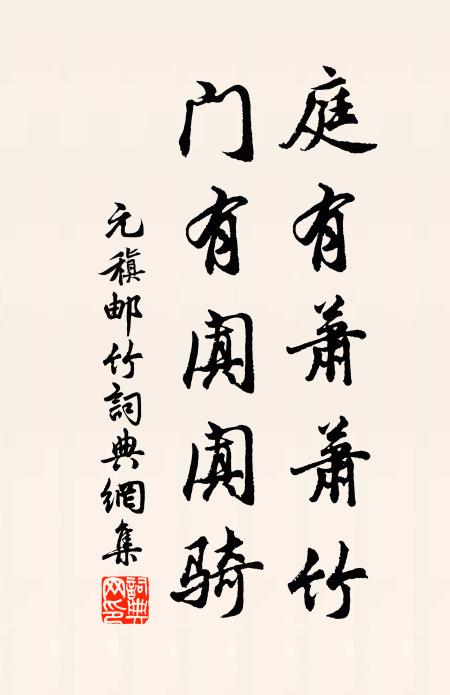 庭有萧萧竹
门有阗阗骑
元稹邮竹詞典網集
詞典网印